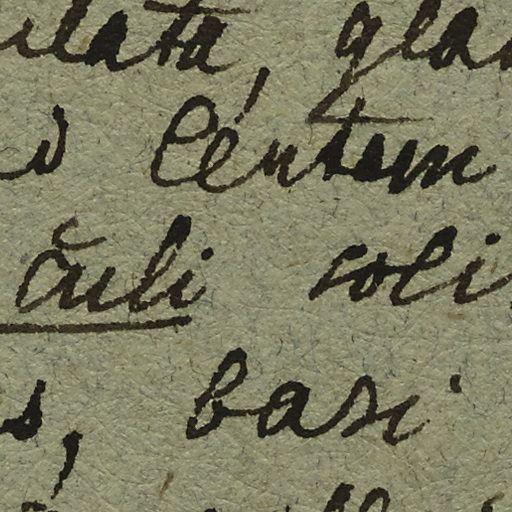 ilata, gla
o Centum
culi soli
s, basi